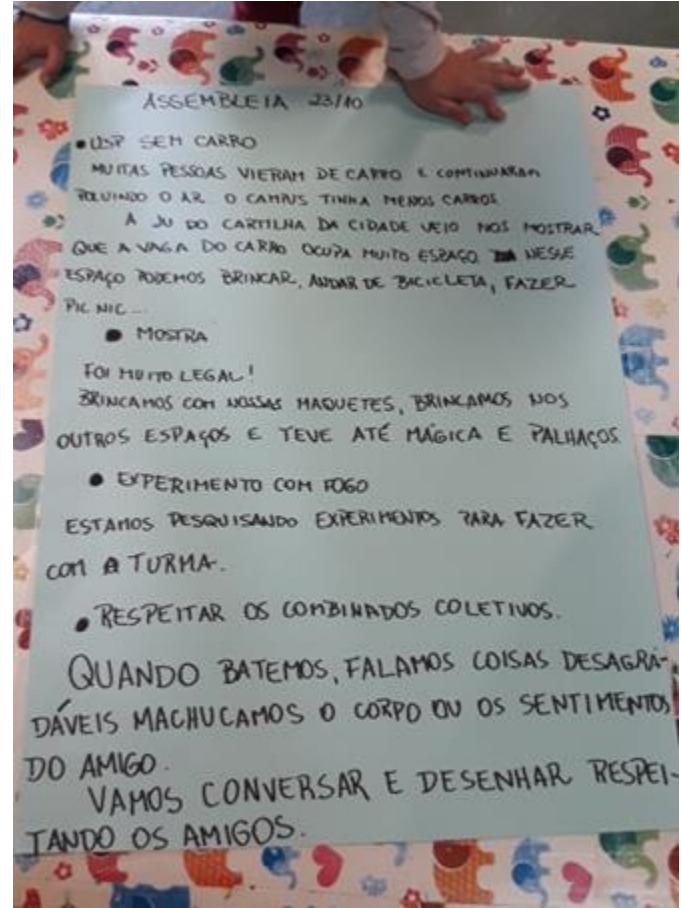 ASSEMBLEIA 23/10
• USP SEM CARRO
MUITAS PESSOAS VIERAM DE CARRO E CONTINUARAM
POLUINDO O AR. O CAMPUS TINHA MENOS CARROS.
A JU DO CARTILHA DA CIDADE VEIO NOS MOSTRAR
QUE A VAGA DO CARRO OCUPA MUITO ESPAÇO. NESSE
ESPAÇO PODEMOS BRINCAR, ANDAR DE BICICLETA, FAZER
PIC NIC...
• MOSTRA
FOI MUITO LEGAL!
BRINCAMOS COM NOSSAS MAQUETES, BRINCAMOS NOS
OUTROS ESPAÇOS E TEVE ATÉ MÁGICA E PALHAÇOS.
• EXPERIMENTO COM FOGO
ESTAMOS PESQUISANDO EXPERIMENTOS PARA FAZER
COM A TURMA.
• RESPEITAR OS COMBINADOS COLETIVOS.
QUANDO BATEMOS, FALAMOS COISAS DESAGRA-
DÁVEIS MACHUCAMOS O CORPO OU OS SENTIMENTOS
DO AMIGO.
VAMOS CONVERSAR E DESENHAR RESPEI-
TANDO OS AMIGOS.